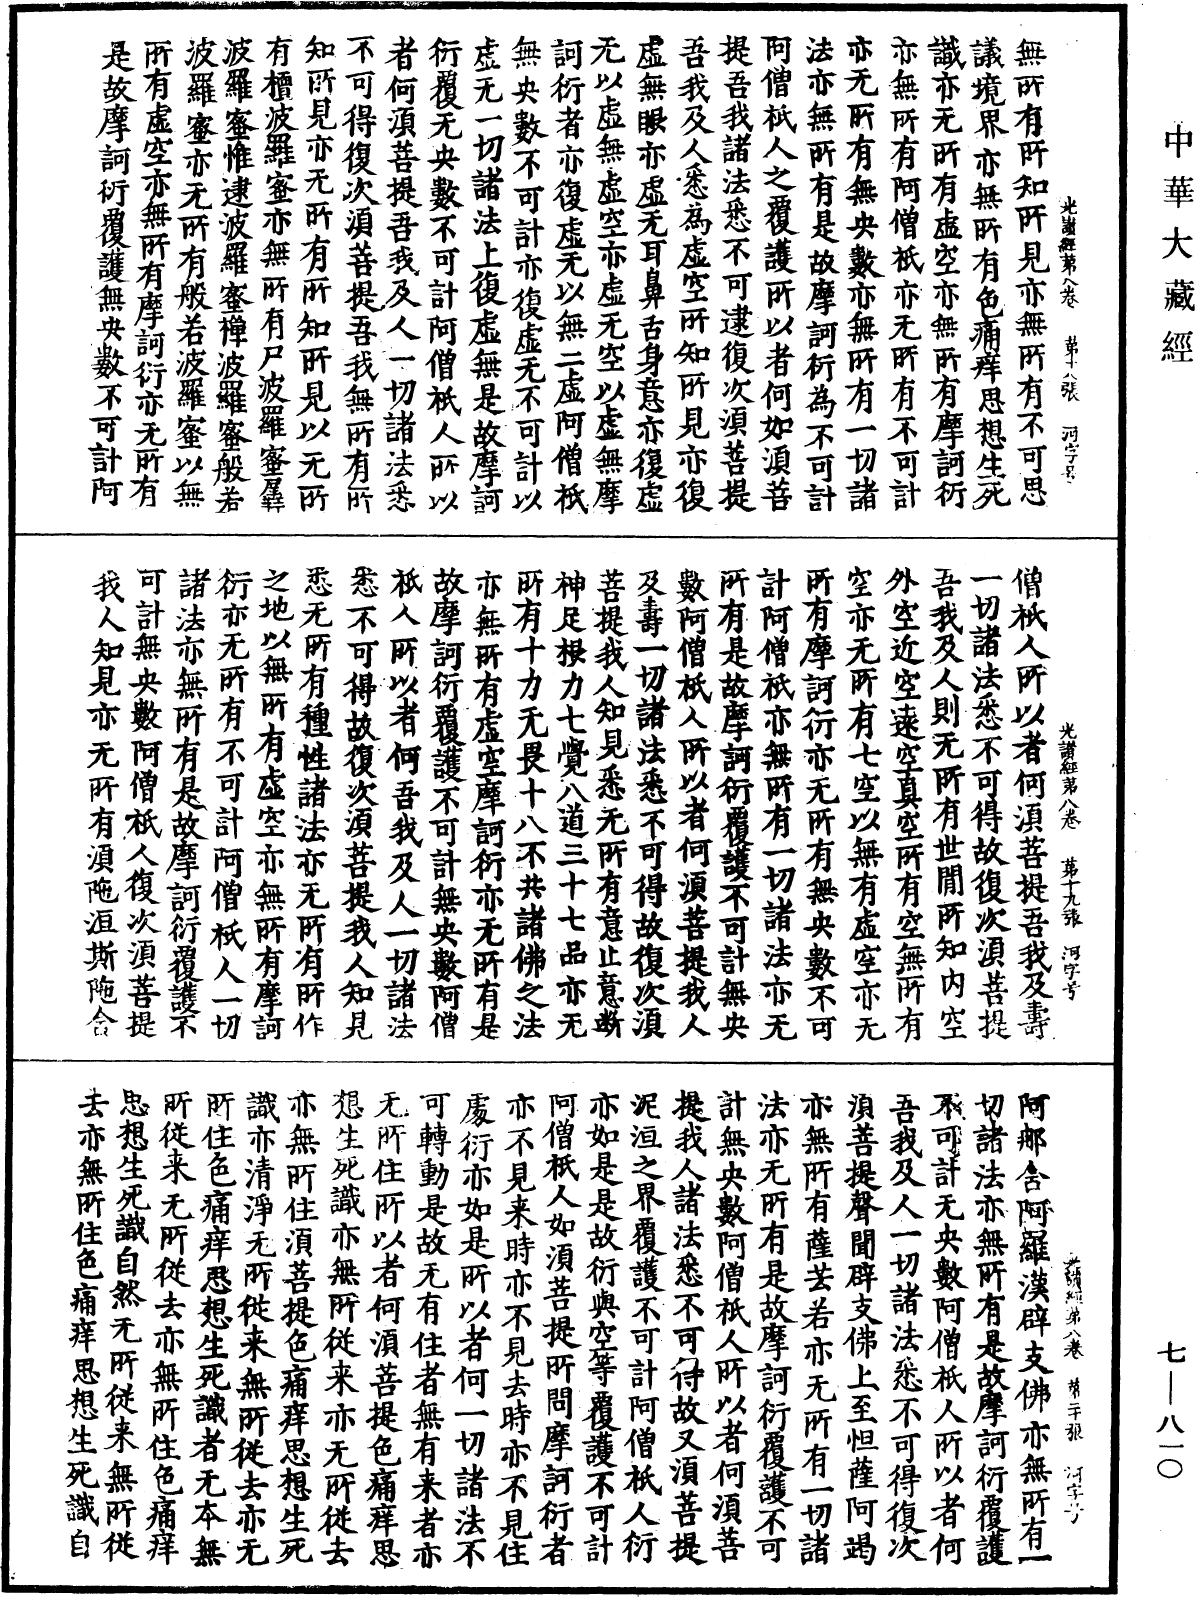 中華大藏經
光讃經第八卷　第十八張　河字号
無所有所知所見亦無所有不可思
議境界亦無所有色痛痒思想生死
識亦无所有虛空亦無所有摩訶衍
亦無所有阿僧祇亦无所有不可計
亦无所有無央數亦無所有一切諸
法亦無所有是故摩訶衍為不可計
阿僧祇人之覆護所以者何如湏菩
提吾我諸法悉不可逮復次湏菩提
吾我及人悉為虛空所知所見亦復
虛無眼亦虛无耳鼻舌身意亦復虛
无以虛無虛空亦虛无空以虛無摩
訶衍者亦復虛无以無二虛阿僧祇
無央數不可計亦復虛无不可計以
虛无一切諸法上復虛無是故摩訶
衍覆无央數不可計阿僧祇人所以
者何湏菩提吾我及人一切諸法悉
不可得復次湏菩提吾我無所有所
知所見亦无所有所知所見以无所
有檀波羅蜜亦無所有尸波羅蜜羼
波羅蜜惟逮波羅蜜禪波羅蜜般若
波羅蜜亦无所有般若波羅蜜以無
所有虛空亦無所有摩訶衍亦无所有
是故摩訶衍覆護無央數不可計阿
光讃經第八卷　第十九張　河字号
僧祇人所以者何湏菩提吾我及壽
一切諸法悉不可得故復次湏菩提
吾我及人則无所有世閒所知内空
外空近空遠空真空所有空無所有
空亦无所有七空以無有虛空亦无
所有摩訶衍亦无所有無央數不可
計阿僧祇亦無所有一切諸法亦无
所有是故摩訶衍覆護不可計無央
數阿僧祇人所以者何湏菩提我人
及壽一切諸法悉不可得故復次湏
菩提我人知見悉无所有意止意斷
神足根力七覺八道三十七品亦无
所有十力无畏十八不共諸佛之法
亦無所有虛空摩訶衍亦无所有是
故摩訶衍覆護不可計無央數阿僧
祇人所以者何吾我及人一切諸法
悉不可得故復次湏菩提我人知見
悉无所有種性諸法亦无所有所作
之地以無所有虛空亦無所有摩訶
衍亦无所有不可計阿僧祇人一切
諸法亦無所有是故摩訶衍覆護不
可計無央數阿僧祇人復次湏菩提
我人知見亦无所有湏陁洹斯陁含
光讃經第八卷　第二十張　河字号
阿那含阿羅漢辟支佛亦無所有一
切諸法亦無所有是故摩訶衍覆護
不可計无央數阿僧祇人所以者何
吾我及人一切諸法悉不可得復次
湏菩提聲聞辟支佛上至怛薩阿竭
亦無所有薩芸若亦无所有一切諸
法亦无所有是故摩訶衍覆護不可
計無央數阿僧祇人所以者何湏菩
提我人諸法悉不可得故又湏菩提
泥洹之界覆護不可計阿僧祇人衍
亦如是是故衍與空等覆護不可計
阿僧祇人如湏菩提所問摩訶衍者
亦不見来時亦不見去時亦不見住
處衍亦如是所以者何一切諸法不
可轉動是故无有住者無有来者亦
无所住所以者何湏菩提色痛痒思
想生死識亦無所從来亦无所從去
亦無所住湏菩提色痛痒思想生死
識亦清淨无所從来無所從去亦无
所住色痛痒思想生死識者无本無
所從来无所從去亦無所住色痛痒
思想生死識自然无所從来無所從
去亦無所住色痛痒思想生死識自
七—八一〇